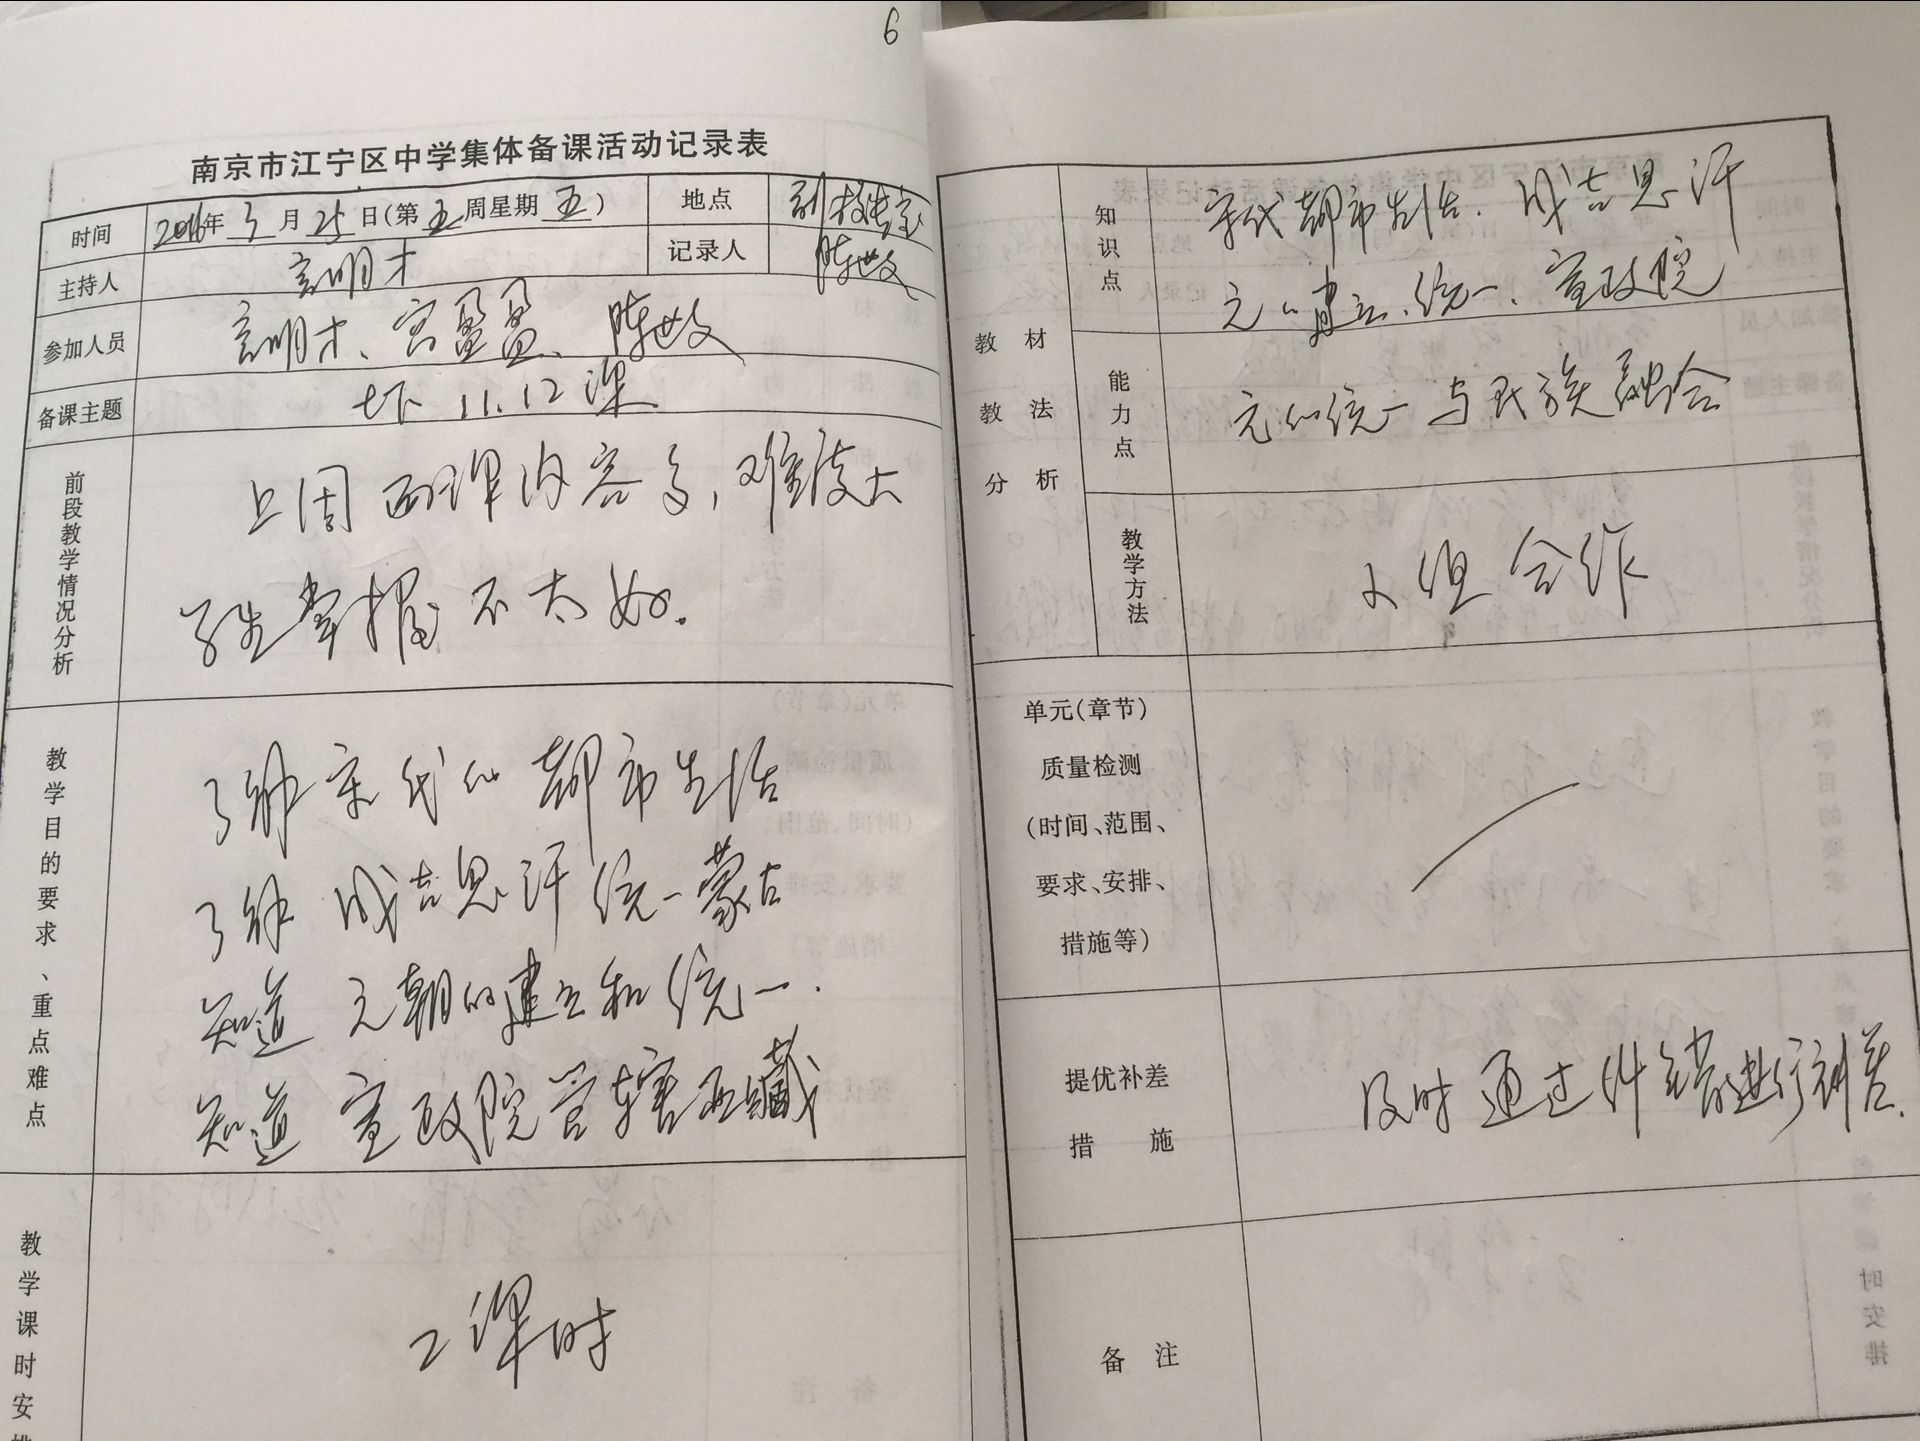 6
南京市江宁区中学集体备课活动记录表
时间 2016年 3 月 25 日(第 五 周星期 五 ) 地点 副校长室
主持人 言明才 记录人 陈世文
参加人员 言明才、宫盈盈、陈世文
备课主题 七下 11.12课
前段教学情况分析
上周两课内容多,难度大
学生掌握不太好.
教学目的要求、重点难点
了解宋代的都市生活
了解 成吉思汗统一蒙古
知道 元朝的建立和统一.
知道 宣政院管辖西藏
教学课时安排
2课时
教材教法分析
知识点
宋代都市生活、成吉思汗
元的建立、统一、宣政院
能力点
元的统一与民族融合
教学方法
小组合作
单元(章节)
质量检测
(时间、范围、
要求、安排、
措施等)
提优补差
措施
及时通过纠错进行补差.
备注